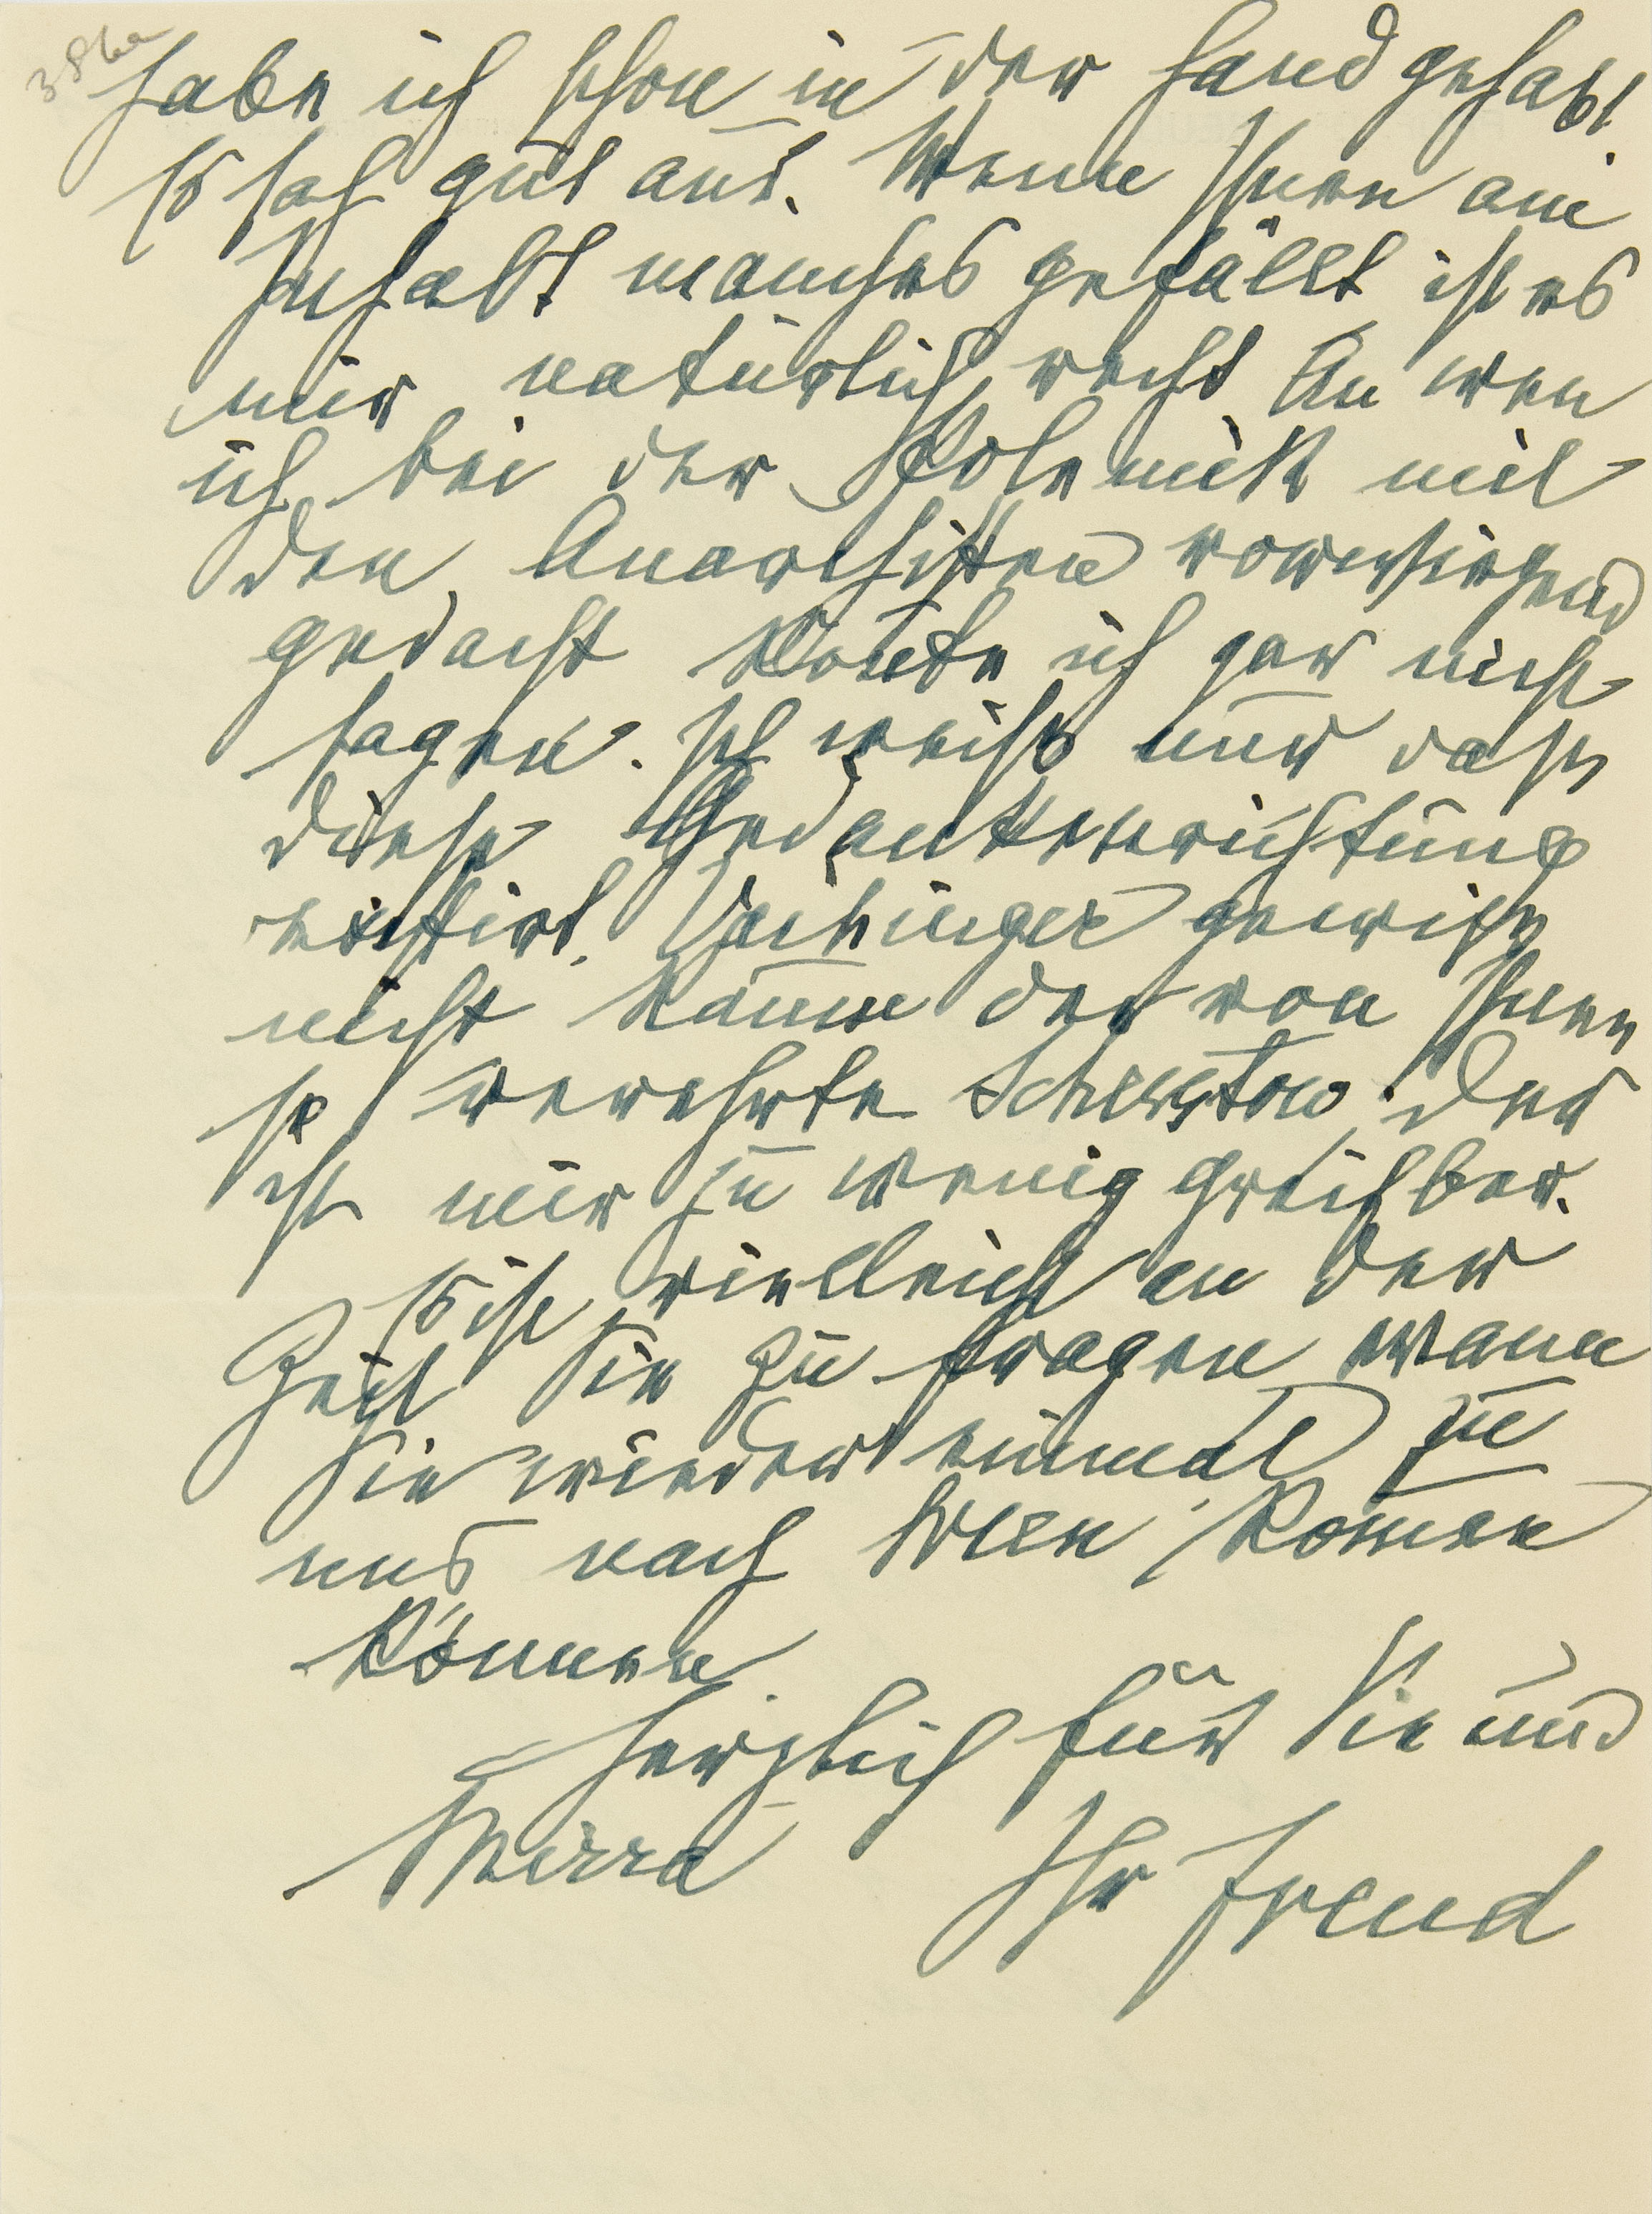 habe ich schon in der Hand gehabt.
Es sah gut aus. Wenn Ihnen am
Inhalt manches gefällt ist es
mir natürlich recht. An wen
ich bei der Polemik mit
den Anarchisten vorwiegend
gedacht könnte ich gar nicht
sagen. Ich weiß nur daß
diese Gedankenrichtung
existirt. Vaihinger gewiß
nicht kaum der von Ihnen
so verehrte Schestow. Der
ist mir zu wenig greifbar.
Es ist vielleicht an der
Zeit Sie zu fragen wann
Sie wieder einmal zu
uns nach Wien kom̄en
können.
Herzlich für Sie und
Mirra
Ihr Freud